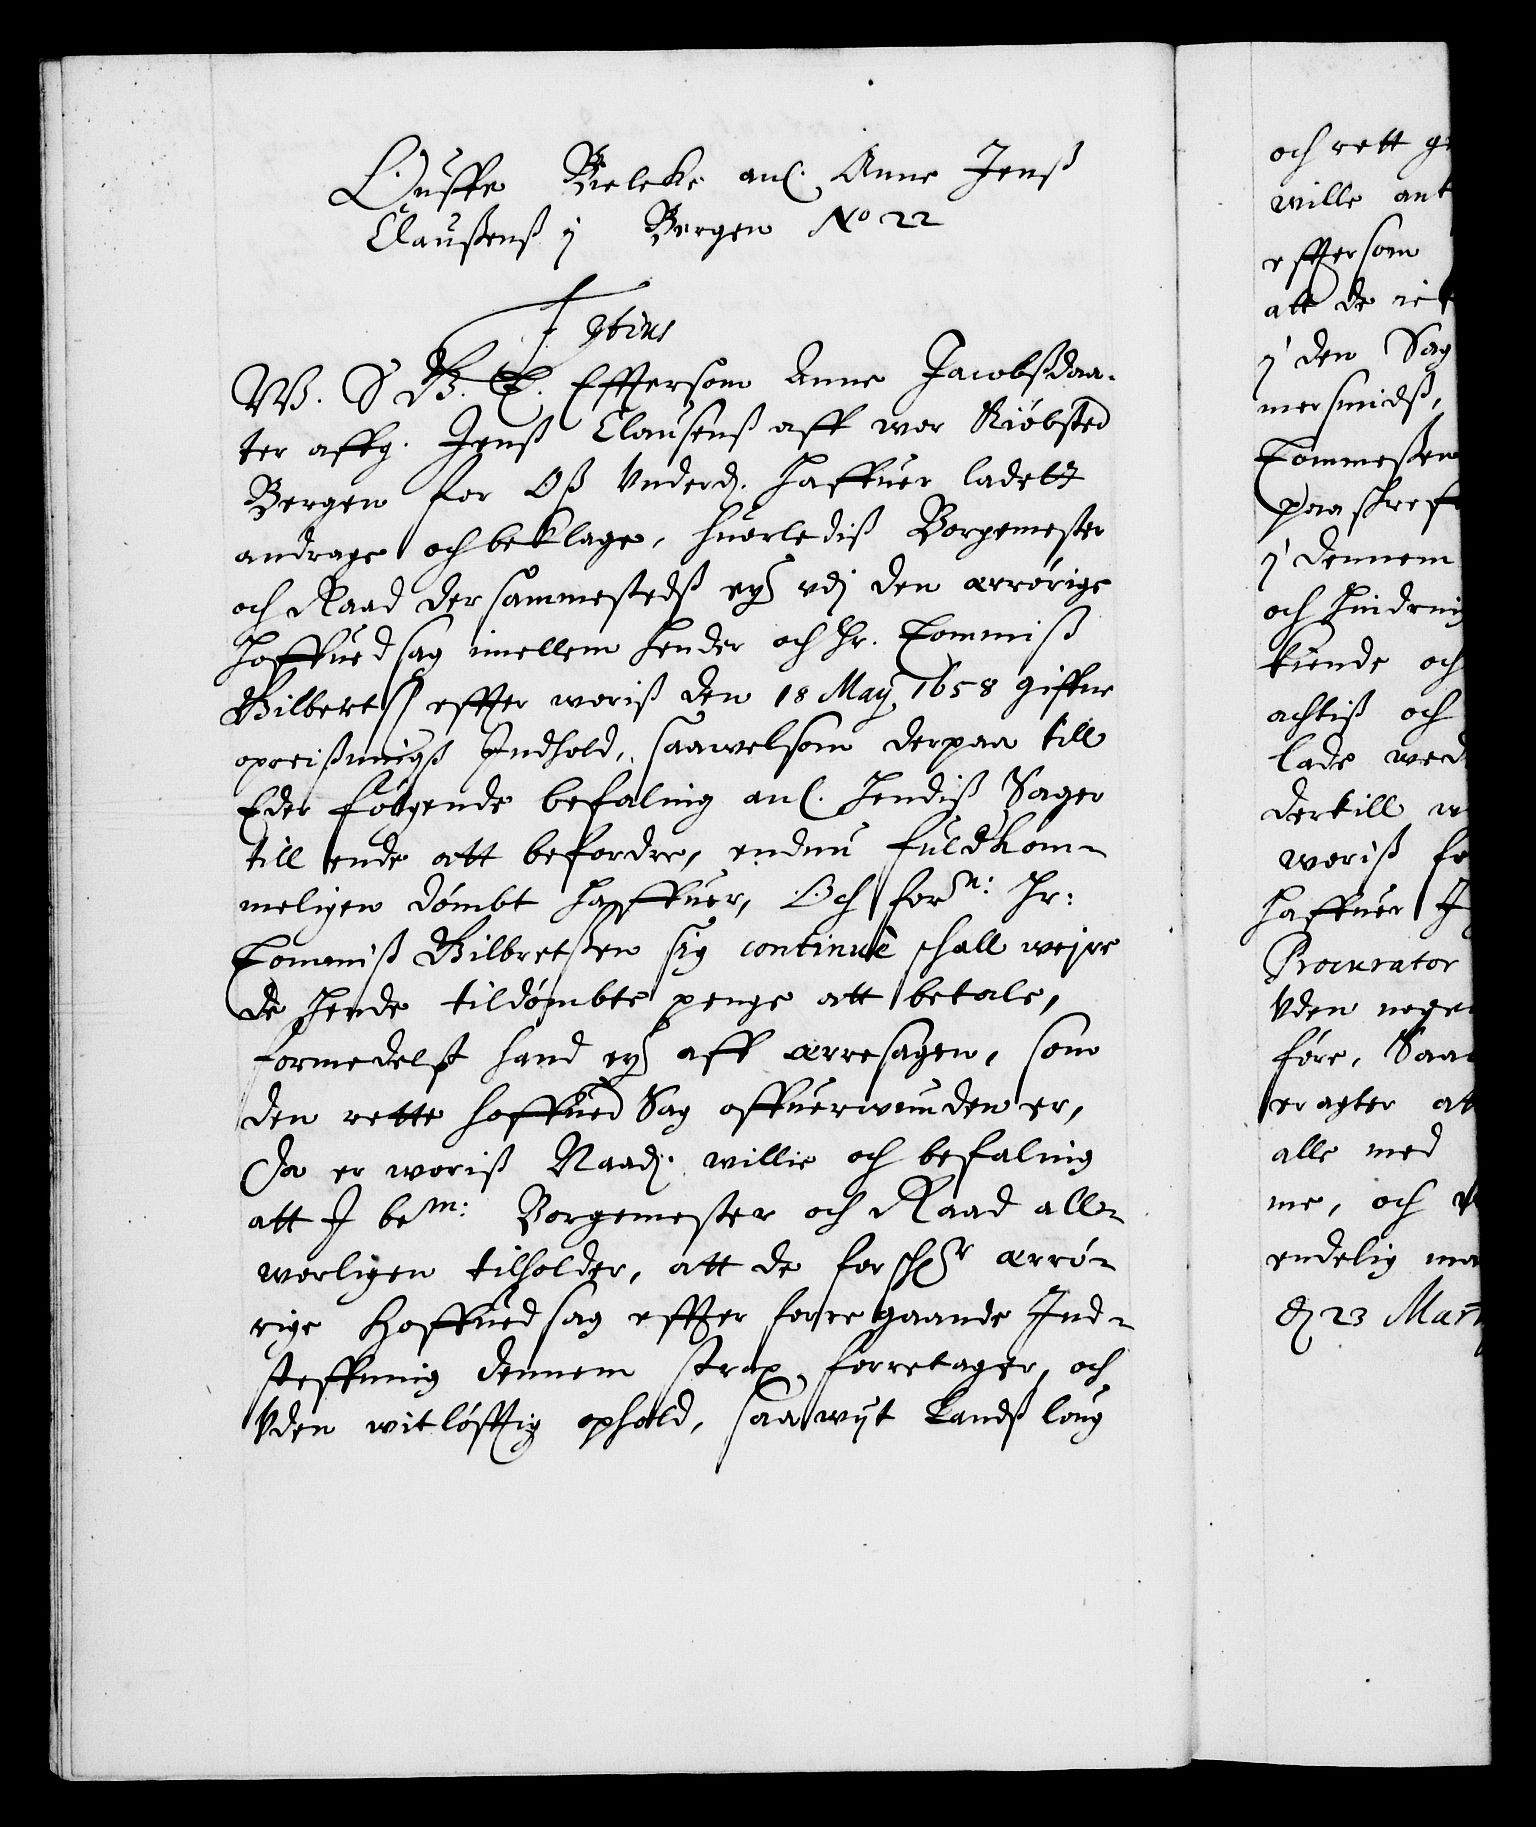 Ouffe Bielcke anl. Anne Jenß
Claußenß i Bergen No 22
F 3tius
W. S G. T. Efftersom Anne Jacobßdaa-
ter affg. Jenß Claußenß aff wor Kiøbsted
Bergen for Oß Underd. Haffuer ladett
andrage och beklage, huorlediß Borgemester
och Raad dersammestedß ey udj den ærrørige
Hoffued sag imellem hender och Hr. Tommiß
Gilbertß effter woriß den 18 Maij 1658 giffne
opreißningß Indhold, saawelsom derpaa till
Eder følgende befaling anl. Hendiß Sager
till ende att befordre, endnu fuldkom-
meligen dømbt haffuer, Och forn: Hr:
Tommiß Gilbretßen sig continuè schall weyre
de hende tildømbte penge att betale,
formedelst hand ey aff ærresagen, som
den rette hoffued Sag offuerwunden er,
Da er woriß Naad. willie och befaling
att I bem: Borgemester och Raad all-
worligen tilholder, att de forschr ærrø-
rige Hoffuedsag effter foregaaende Ind-
steffning dennem strax forretager, och
Uden witløfftig ophold, saawijt Landßloug
och rett g
wille ant
efftersom
att de ret
i den Sag
mersmidß,
Tommeßen
paaskref
i dennem
och Hindrin
kiende och
achtiß och
lade wed
dertill w
woriß fo
haffuer I
Procurator
Uden noge
føre, Saa
eragter at
alle med
me, och
endelig ma
d 23 Mart